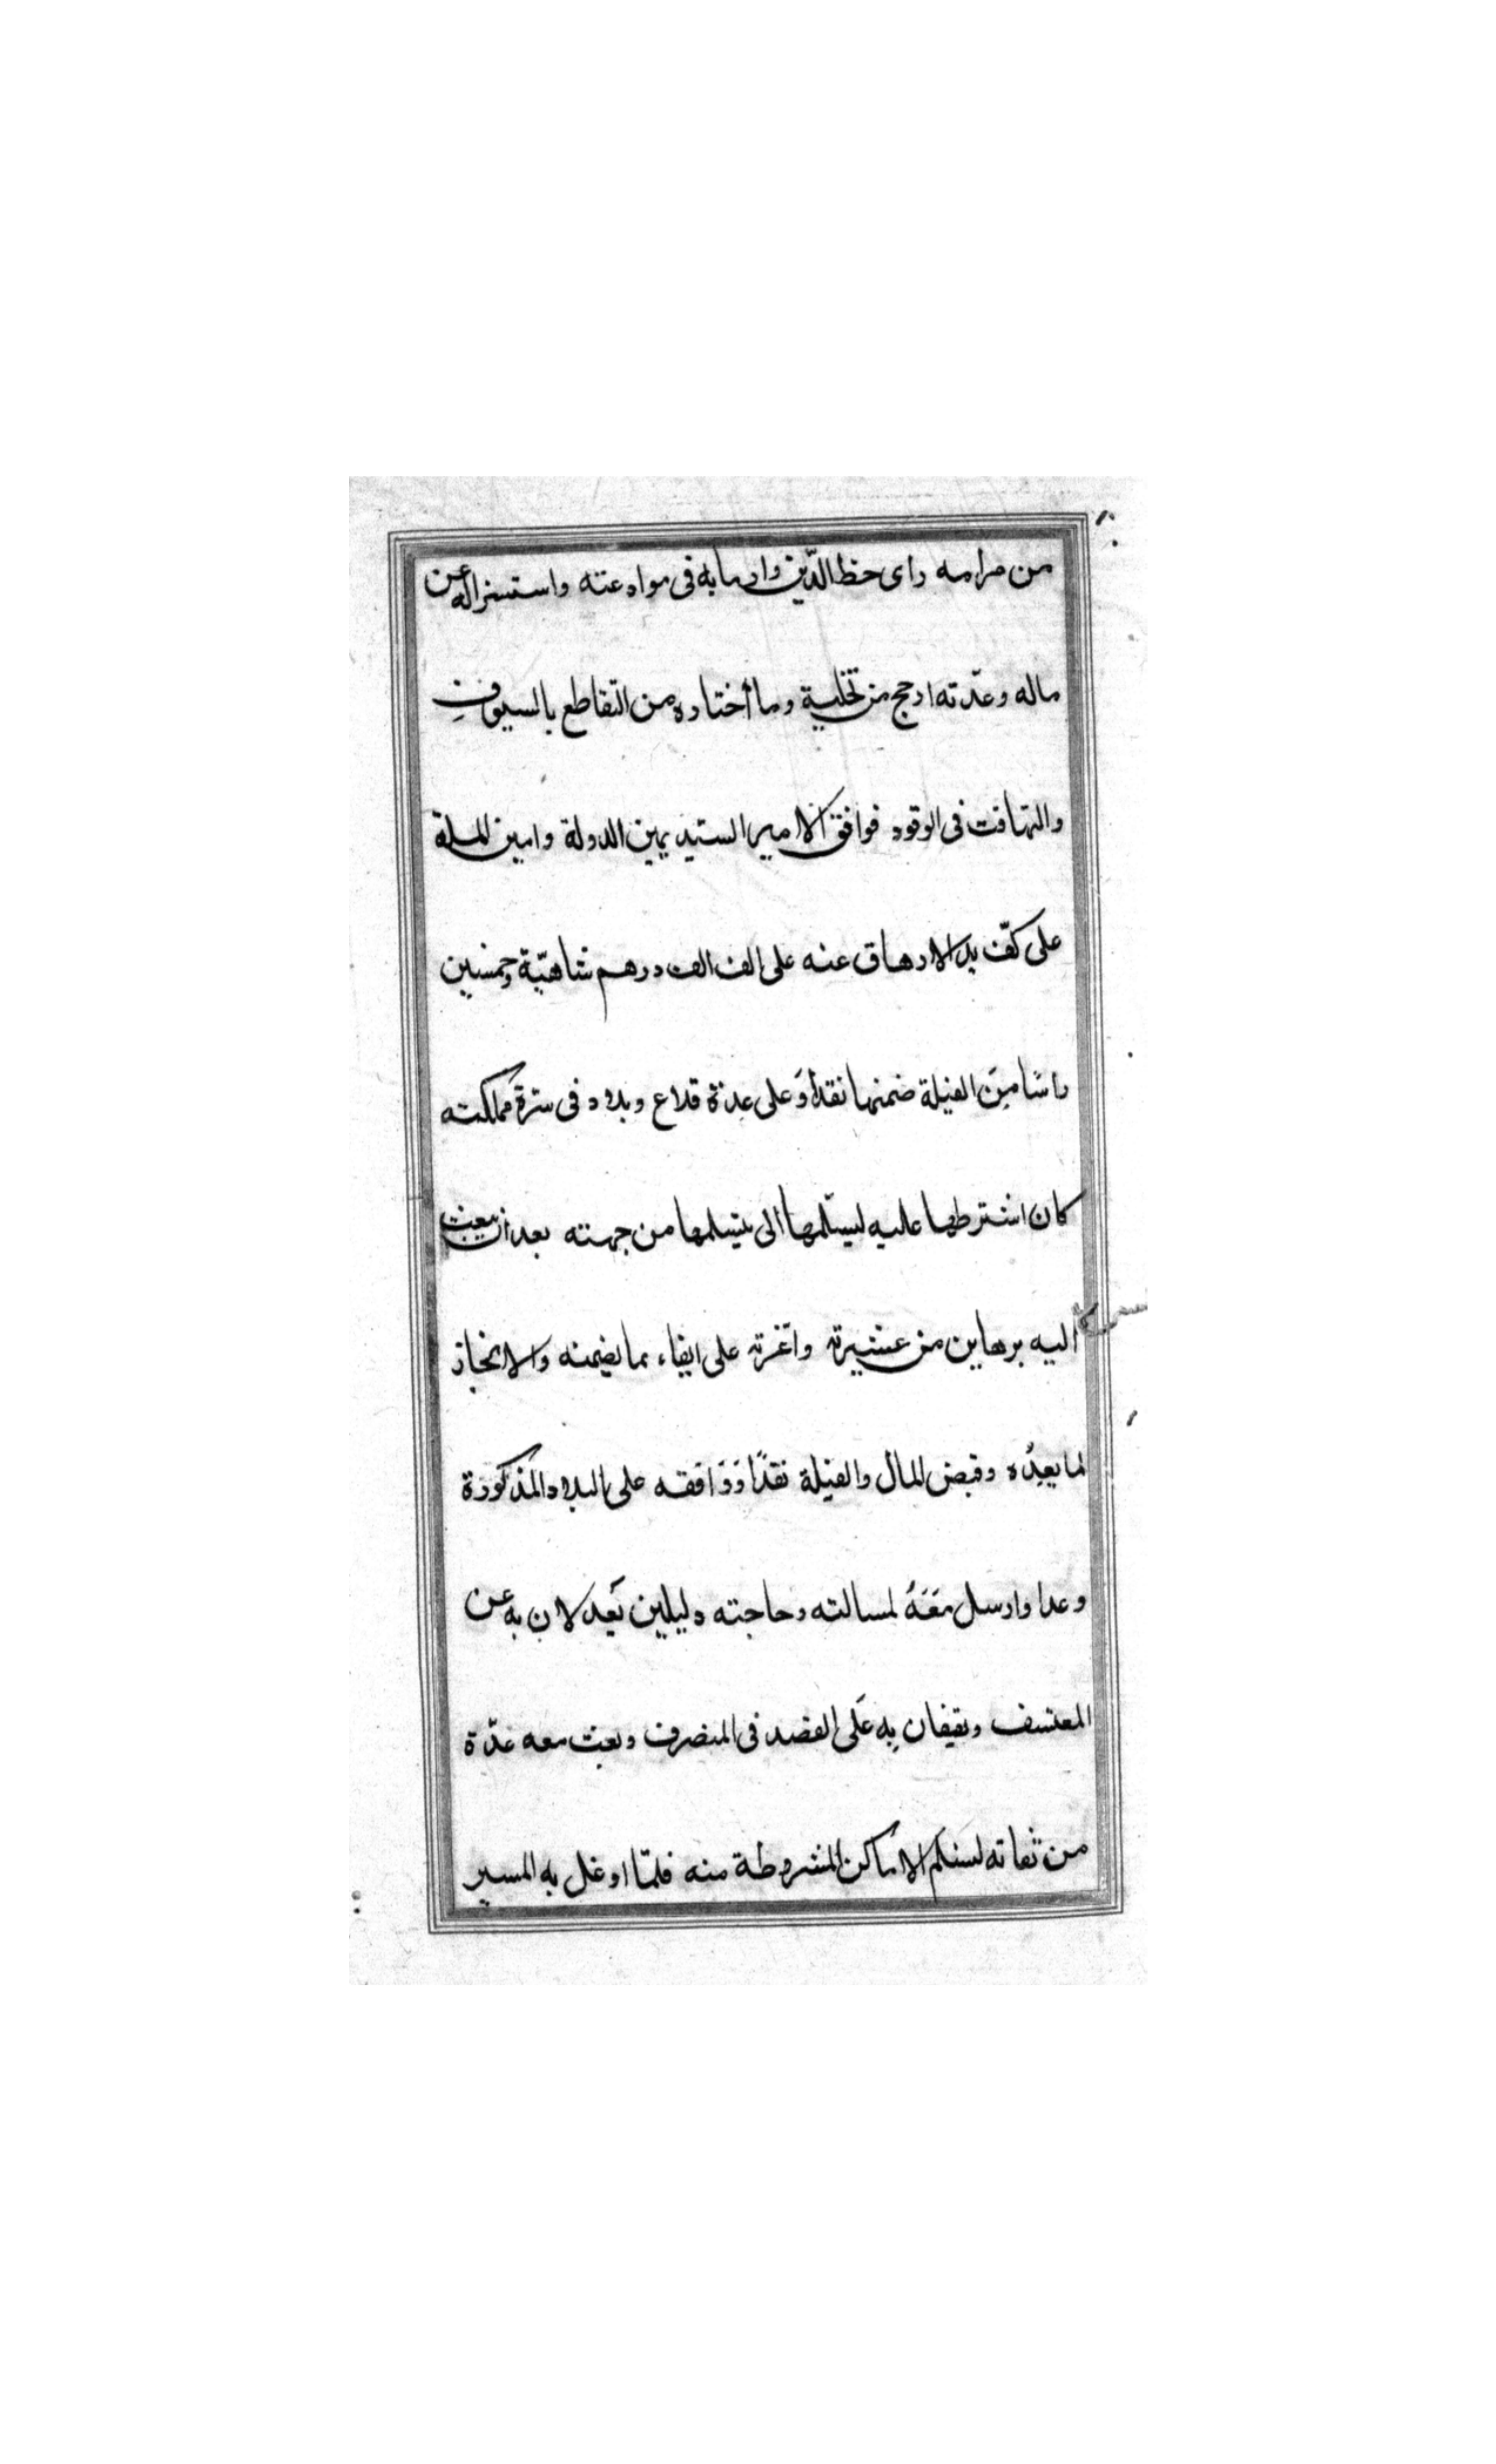 من مرامه رای حظ الدّین واربابه فی موادعته واستنزاله عن
ماله وعدّته ارجح من تخلیة وما أختاره من التقاطع بالسیوفِ
والتهافت فی الوقود فوافق الامیر السیّد یمین الدولة وامین الملة
علی کفّ ید الارهاق عنه علی الف الف درهم شاهیّة وخمسین
راسًا مِنَ الفیلة ضمنها نقدًا وَعلی عِدّة قلاع وبلاد فی سرّة مملکته
کان اشترطها علیه لیسلّمها الی یتسلمها من جهته بعد ان یبعث
الیه برهاین من عشیرته واعّزته علی ایفاء بما یضمنه والانجاز
لما یعِدُه وقبض المال والفیلة نقدًا وَوَافقه علی البلاد المذکورة
وعدا وارسل مَعَهُ لمسالته وحاجته دلیلین یَعدلان به عن
المعتسف ویقیفان بِه عَلی القصد فی المنصرف وبعث معه عدّة
من ثقاته لیسَتلم الاماکن المشروطة منه فلمّا اوغل به المسیر